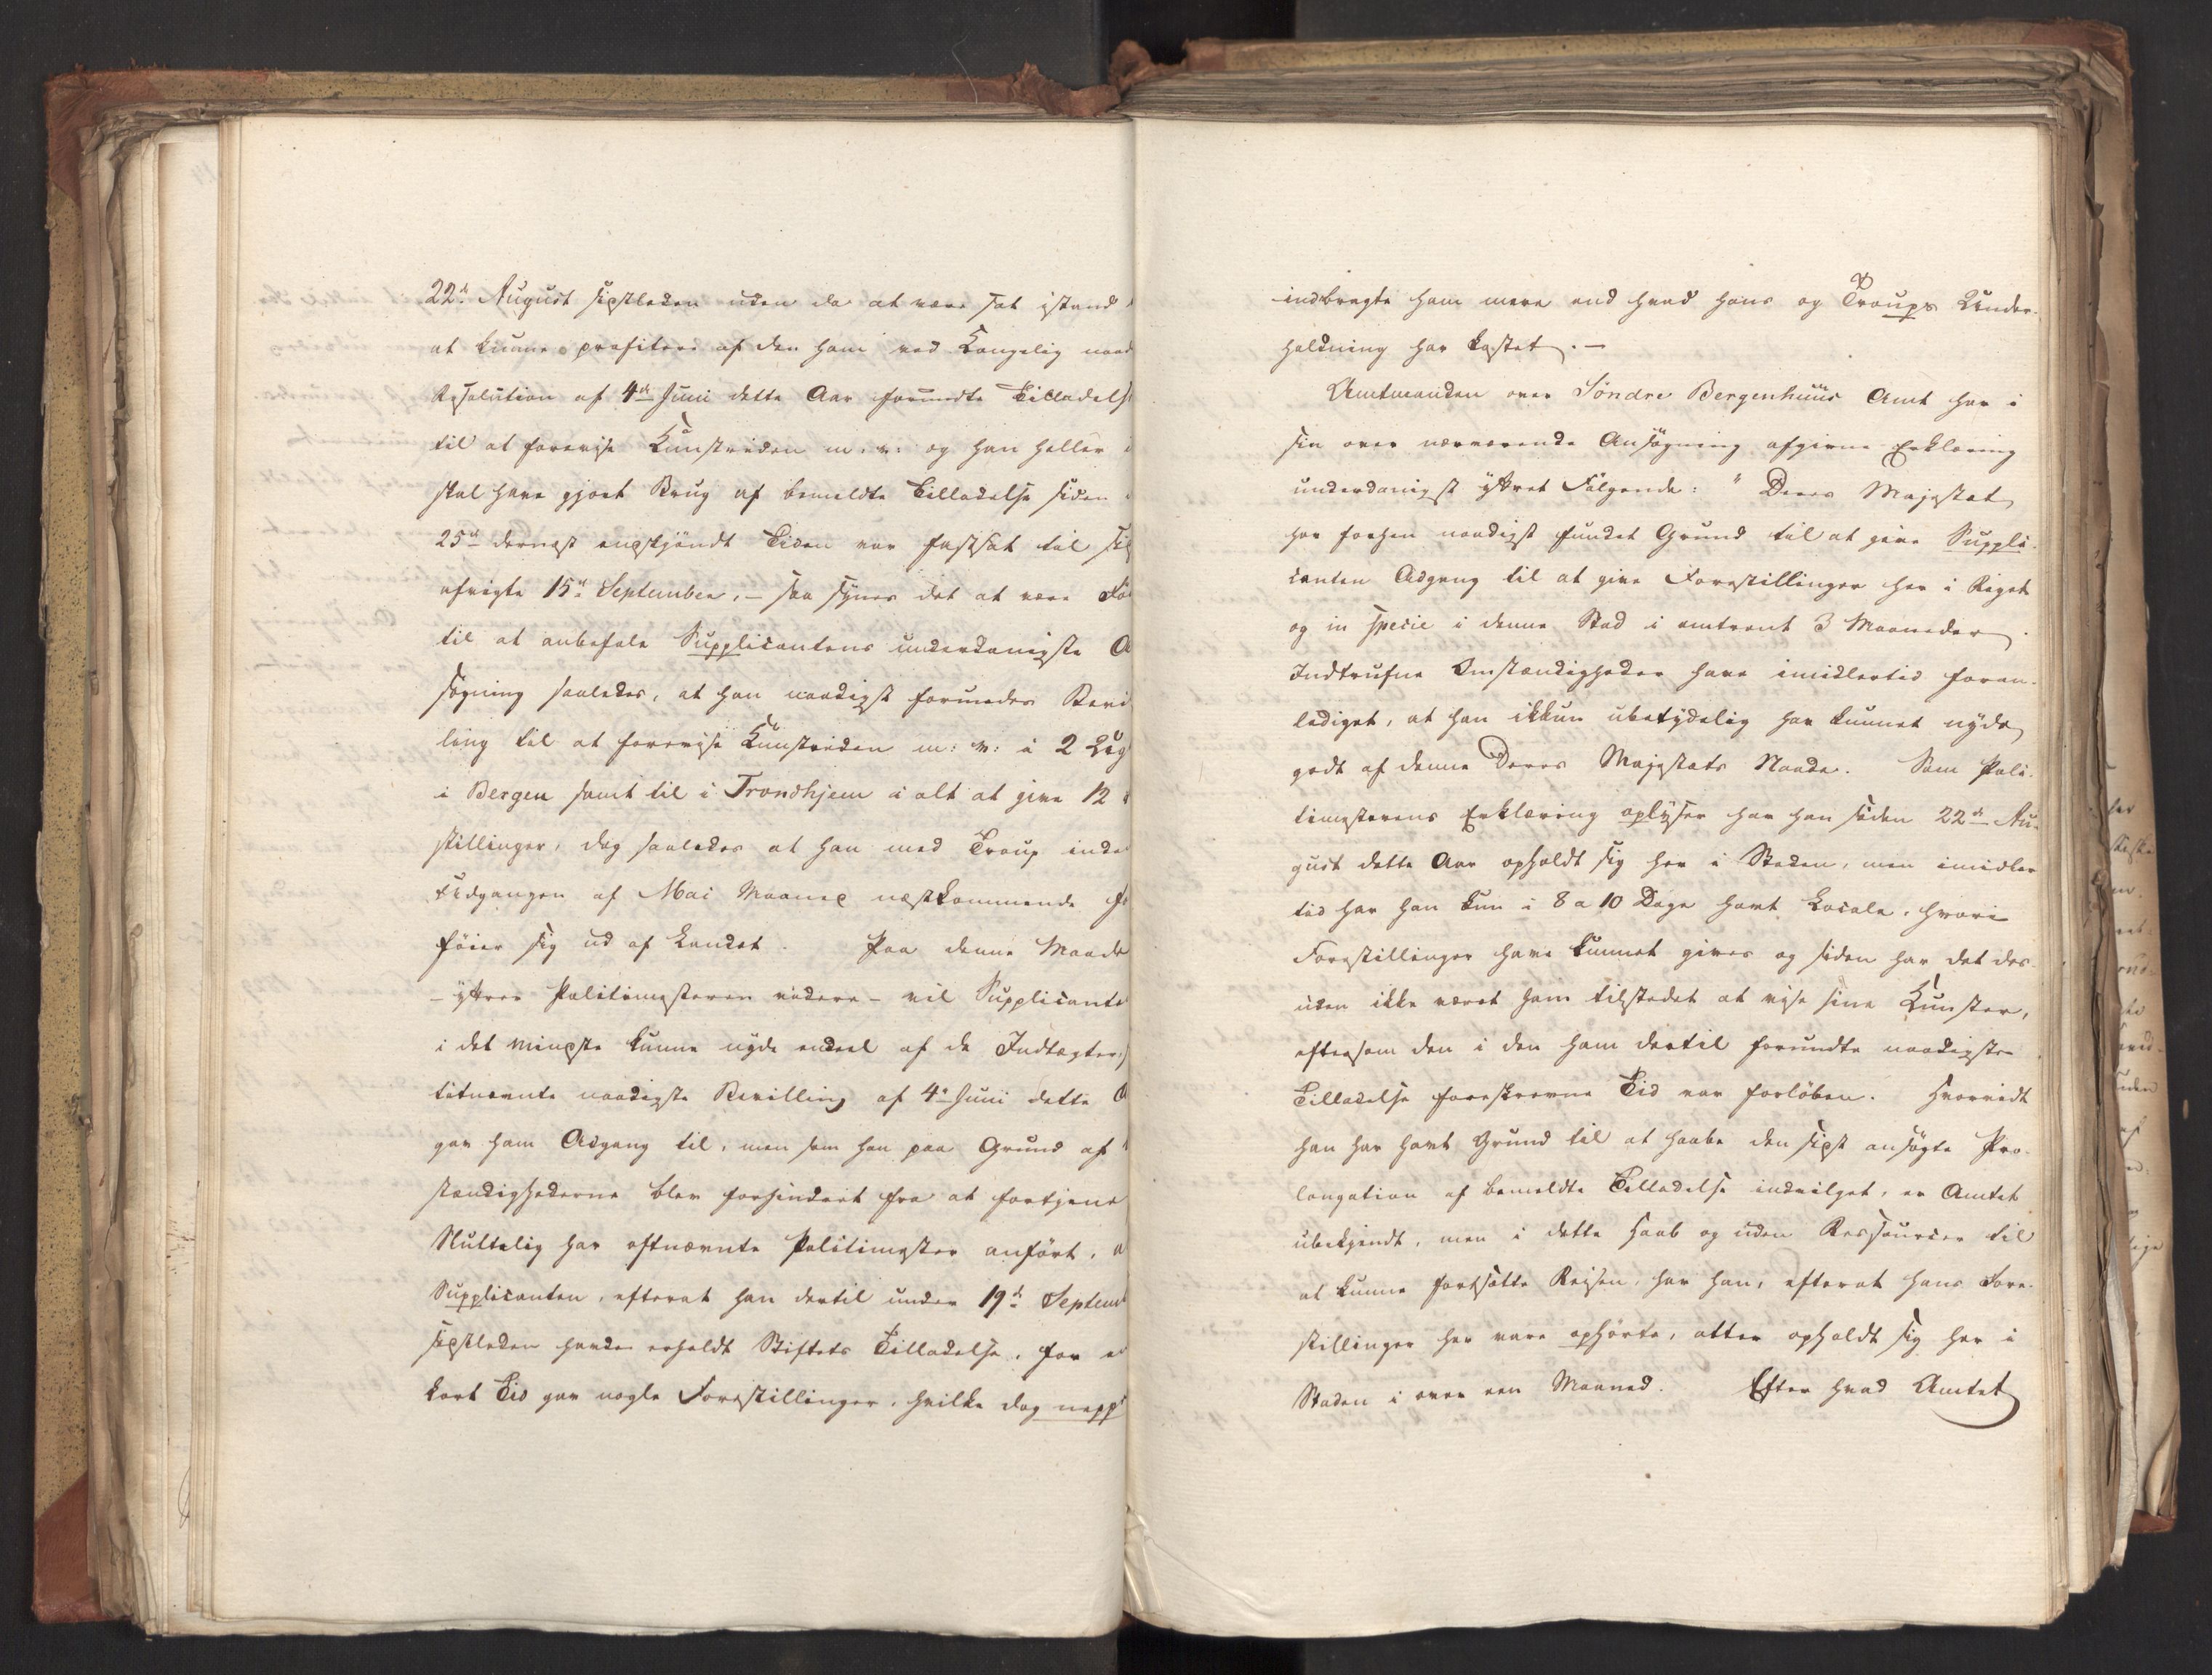 22de August sidstleden uden da at være sat istand
at kunne profitere af den ham ved Kongelig naad
Resolution af 4de Juni dette Aar forundte Tilladelse
til at forevise Kunstriden m: v: og han heller
skal have gjort Brug af bemeldte Tilladelse siden
25de dernæst enskjöndt Tiden var fastsat til
afvigte 15de September, – saa synes det at være
til at anbefale Supplicantens underdanigste
sögning saaledes, at han naadigst forundes Bevil
ling til at forevise Kunstriden m: v: i 2
i Bergen samt til i Trondhjem i alt at give 12
stillinger, dog saaledes at han med Troup inden
Udgangen af Mai Maaned næstkommende
föier sig ud af Landet. Paa denne Maade
– yttrer Politimesteren videre – vil Supplicanten
i det mindste kunne nyde endeel af de Indtægter,
titnævnte naadigste Bevilling af 4de Juni dette
gav ham Adgang til, men som han paa Grund af
stændighederne blev forhindret fra at fortjene
Sluttelig har oftnævnte Politimester anfört,
Supplicanten, efterat han dertil under 19de Septemb
sidstleden havde erholdt Stiftets Tilladelse, for
kort Tid gav nogle Forestillinger, hvilke dog nepp
indbragte ham mere end hvad hans og Troups Under-
holdning har kostet. –
Amtmanden over Söndre Bergenhuus Amt har i
sin over nærværende Ansögning afgivne Erklæring
underdanigst yttret Fölgende: " Deres Majestæt
har forhen naadigst fundet Grund til at give Suppli-
canten Adgang til at give Forestillinger her i Riget
og in specie i denne Stad i omtrent 3 Maaneder.
Indtrufne Omstændigheder have imidlertid foran-
lediget, at han ikkun ubetydelig har kunnet nyde
godt af denne Deres Majestæts Naade. Som Poli-
timesterens Erklæring oplyser har han siden 22de Au-
gust dette Aar opholdt sig her i Staden, men imidler
tid har han kun i 8 a 10 Dage havt Locale, hvori
Forestillinger have kunnet gives og siden har det des-
uden ikke været ham tilstedet at vise sine Kunster,
eftersom den i den ham dertil forundte naadigste
Tilladelse foreskrevne Tid var forlöben. Hvorvidt
han har havt Grund til at haabe den sidst ansögte Pro-
longation af bemeldte Tilladelse indvilget, er Amtet
ubekjendt, men i dette Haab og uden Ressourcer til
at kunne fortsætte Reisen, har han, efterat hans Fore-
stillinger her vare ophörte, atter opholdt sig her i
Staden i over een Maaned. Efter hvad Amtet